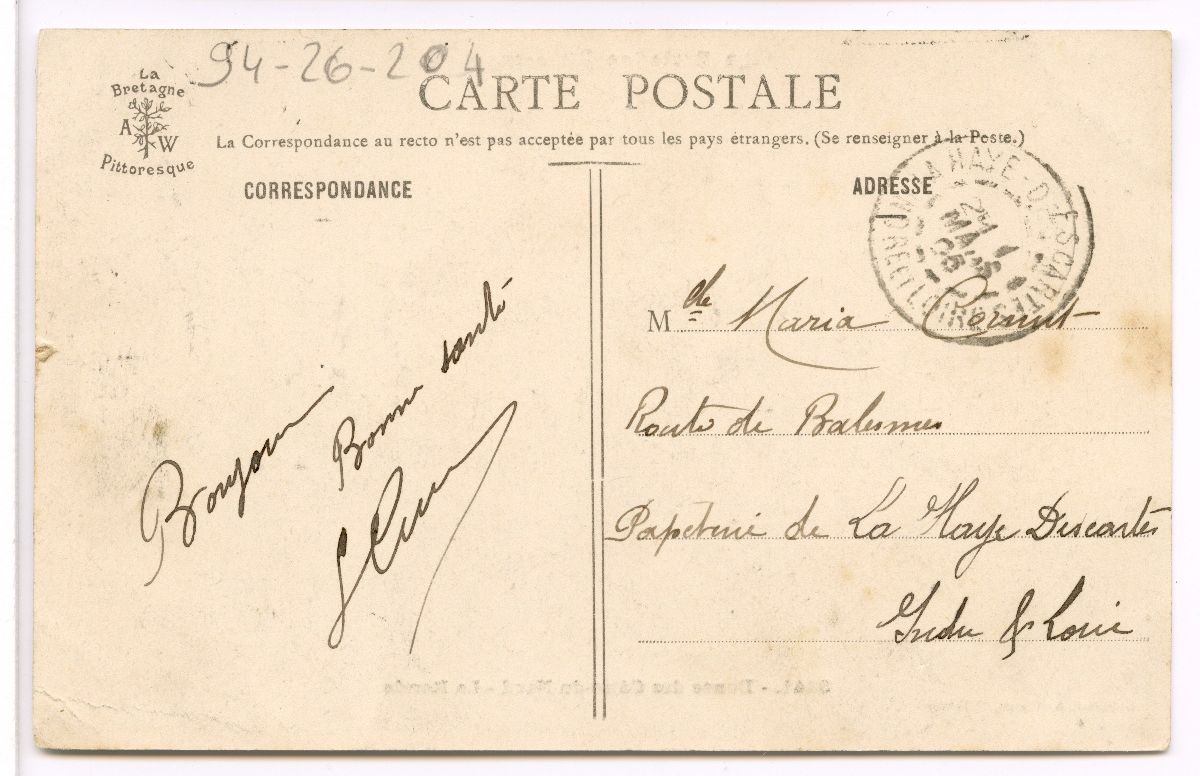 94-26-204
La
Bretagne
A W
Pittoresque
CARTE POSTALE
La Correspondance au recto n'est pas acceptée par tous les pays étrangers. (Se renseigner à la Poste.)
CORRESPONDANCE
ADRESSE
LA HAYE-DESCARTES
INDRE ET LOIRE
MARS
Bonjour
Bonne santé
Mdle Maria Cornut
Route de Balesmes
Papeterie de La Haye Descartes
Indre & Loire